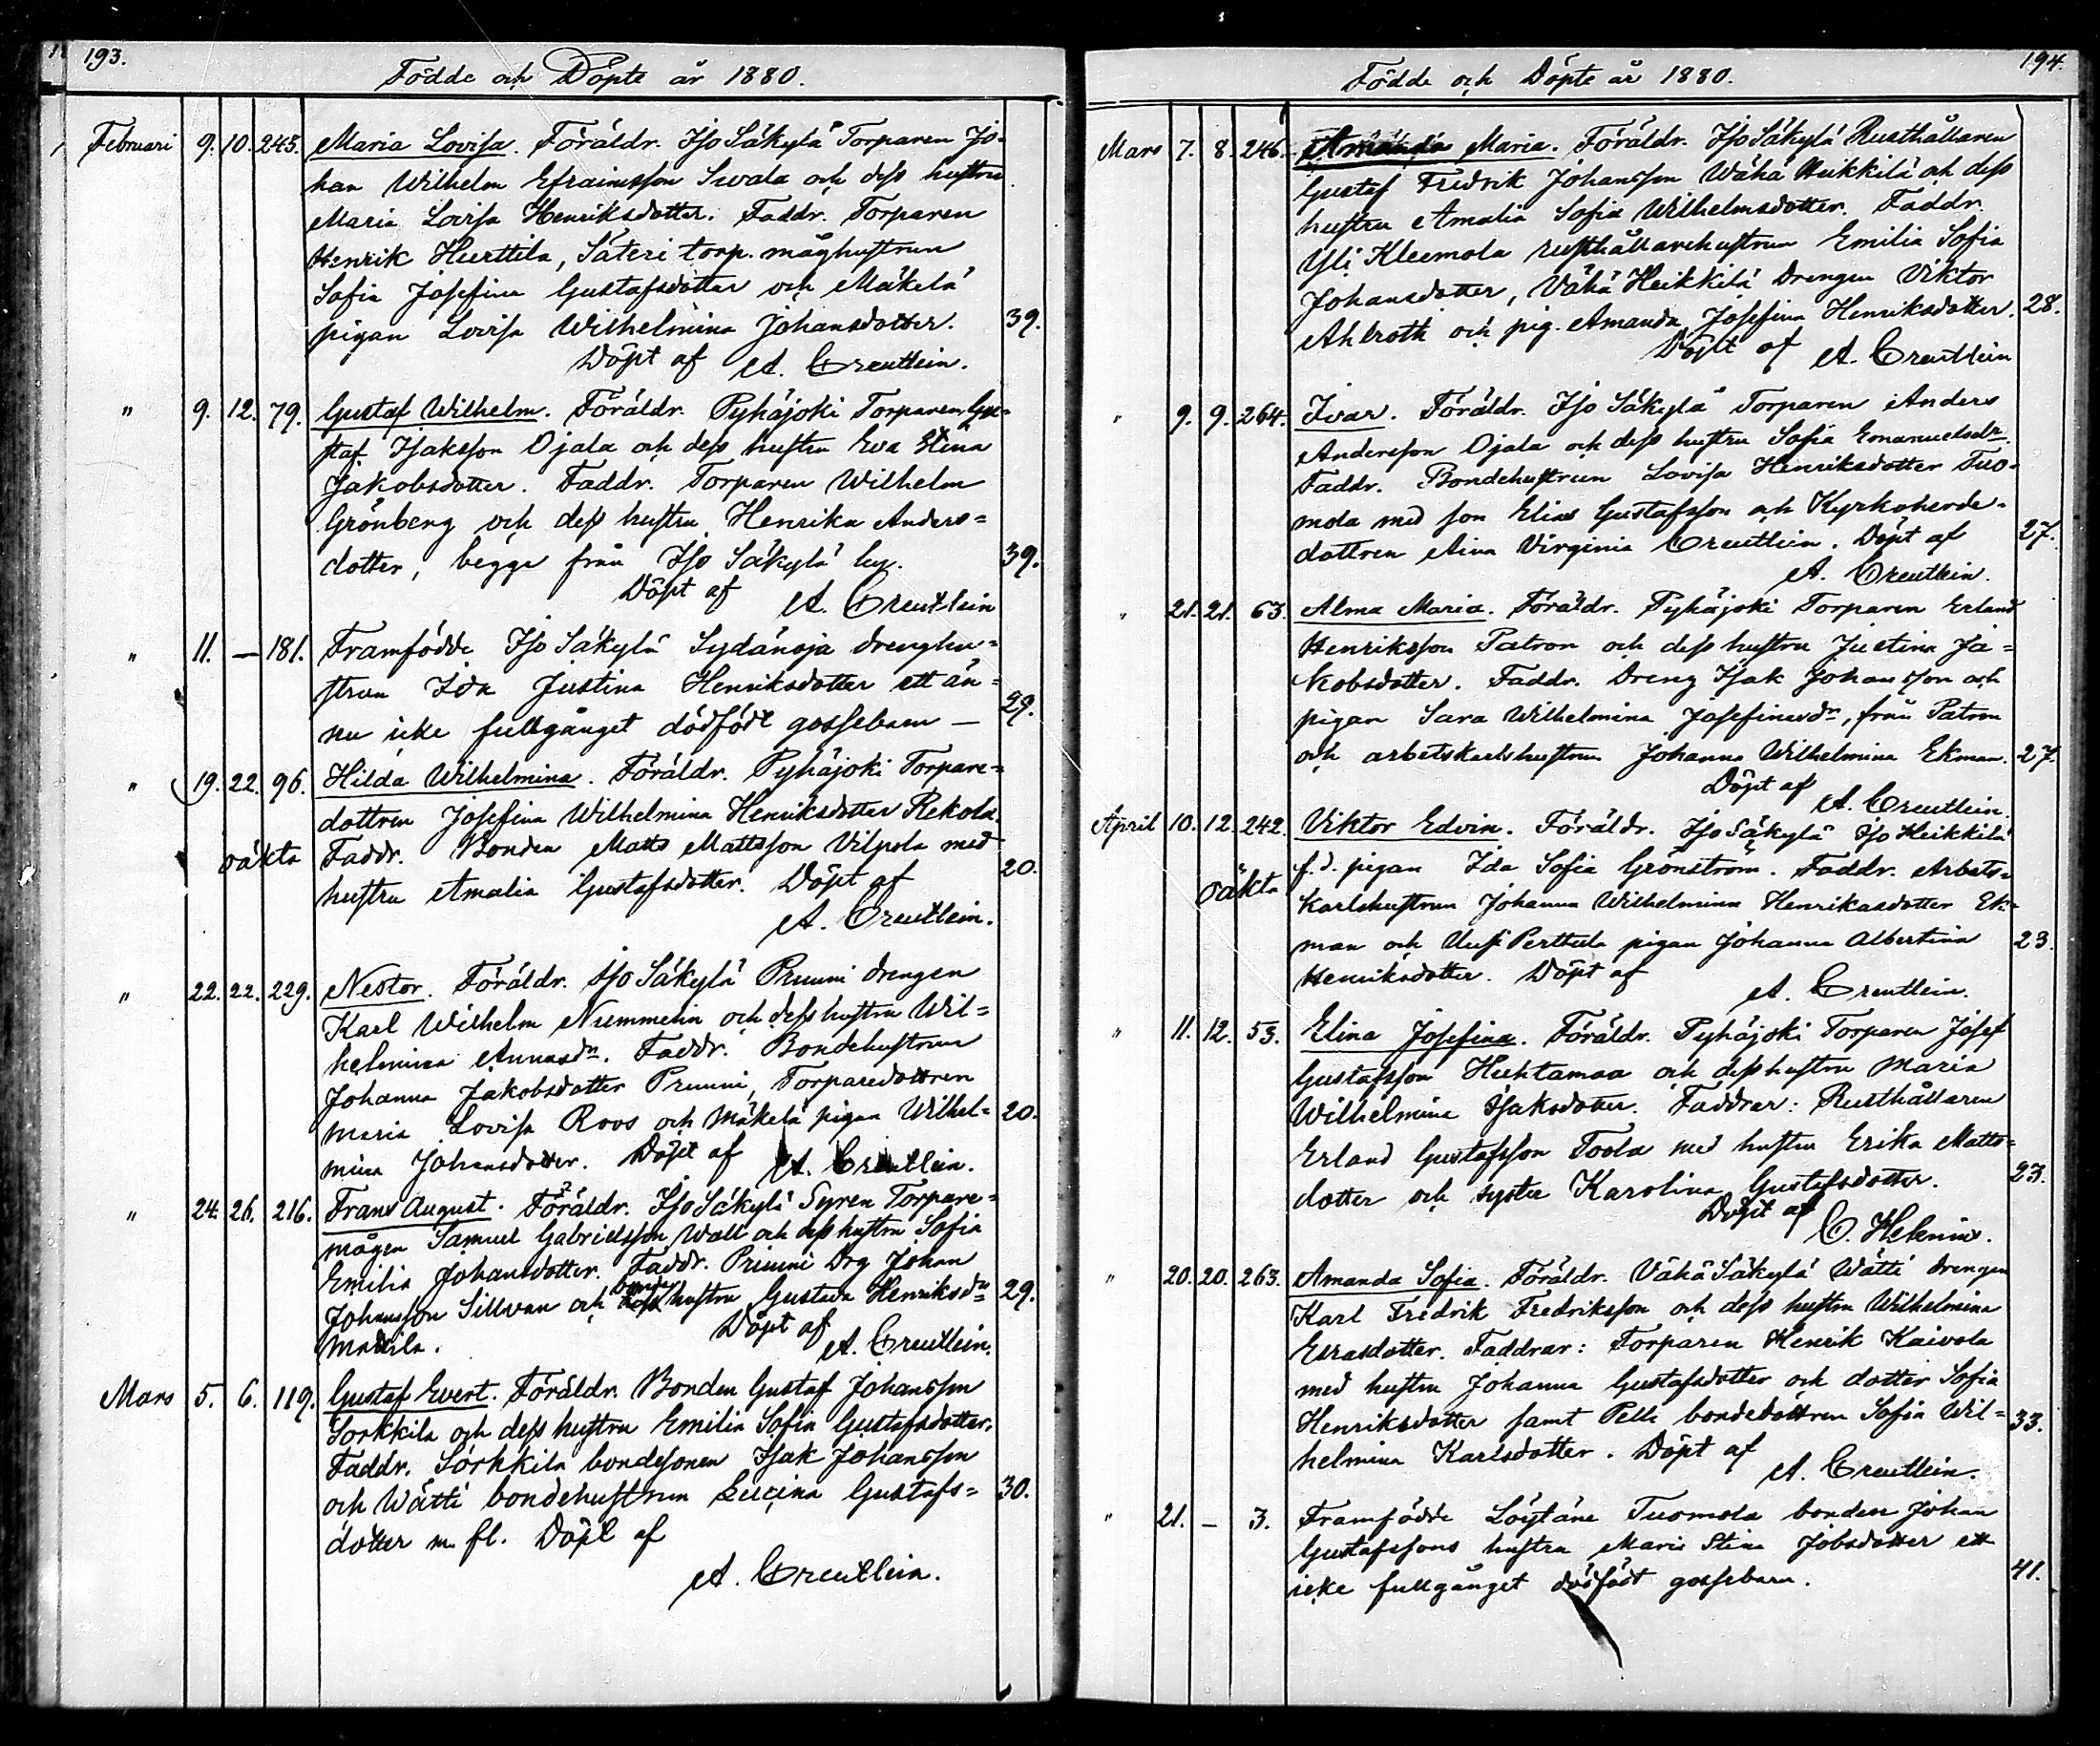 193.
Födde och Döpte år 1880.
Februari 9. 10. 245. Maria Lovisa. Föräldr. Iso Säkylä Torparen Jo-
han Wilhelm Efraimsson Swala och dess hustru
Maria Lovisa Henriksdotter. Faddr. Torparen
Henrik Hurttila, Säteri torp. måghustrun
Sofia Josefina Gustafsdotter och Mäkelä
pigan Lovisa Wilhelmina Johansdotter. 39.
Döpt af A. Creutlein.
" 9. 12. 79. Gustaf Wilhelm. Föräldr. Pyhäjoki Torparen Gu-
staf Isaksson Ojala och dess hustru Eva Stina
Jakobsdotter. Faddr. Torparen Wilhelm
Grönberg och dess hustru Henrika Anders=
dotter, begge från Iso Säkylä by. 39.
Döpt af A. Creutlein
" 11. — 181. Framfödde Iso Säkylä Sydänoja drenghu=
strun Ida Justina Henriksdotter ett än=
nu icke fullgånget dödfödt gossebarn — 29.
" 19. 22. 96. Hilda Wilhelmina. Föräldr. Pyhäjoki Torpare=
dottren Josefina Wilhelmina Henriksdotter Rekola.
oäkta Faddr. Bonden Matts Mattsson Vilpola med
hustru Amalia Gustafsdotter. Döpt af 20.
A. Creutlein.
" 22. 22. 229. Nestor. Föräldr. Iso Säkylä Pruuni drengen
Karl Wilhelm Nummelin och dess hustru Wil=
helmina Annasdr. Faddr. Bondehustrun
Johanna Jakobsdotter Pruuni, Torparedottren
Maria Lovisa Roos och Mäkelä pigan Wilhel= 20.
mina Johansdotter. Döpt af A. Creutlein.
" 24. 26. 216. Frans August. Föräldr. Iso Säkylä Syren Torpare=
mågen Samuel Gabrielsson Wall och dess hustru Sofia
Emilia Johansdotter. Faddr. Pruuni Drg Johan
Johansson Sillvan och bonde hustru Gustava Henriksdr 29.
Mattila. Döpt af
A. Creutlein.
Mars 5. 6. 119. Gustaf Evert. Föräldr. Bonden Gustaf Johansson
Sorkkila och dess hustru Emilia Sofia Gustafsdotter.
Faddr. Sorkkila bondesonen Isak Johansson
och Wätti bondehustrun Lucina Gustafs= 30.
dotter m. fl. Döpt af
A. Creutlein.
194.
Födde och Döpte år 1880.
Mars 7. 8. 246. Amanda Maria. Föräldr. Iso Säkylä Rusthållaren
Gustaf Fredrik Johansson Wähä Heikkilä och dess
hustru Amalia Sofia Wilhelmsdotter. Faddr.
Yli Kleemola rusthållarehustrun Emilia Sofia
Johansdotter, Vähä Heikkilä Drengen Viktor
Ahlroth och pig. Amanda Josefina Henriksdotter. 28.
Döpt af A. Creutlein
" 9. 9. 264. Ivar. Föräldr. Iso Säkylä Torparen Anders
Andersson Ojala och dess hustru Sofia Emanuelsdr.
Faddr. Bondehustrun Lovisa Henriksdotter Tuo-
mola med son Elias Gustafsson och Kyrkoherde-
dottren Aina Virginia Creutlein. Döpt af 27.
A. Creutlein.
" 21. 21. 63. Alma Maria. Föräldr. Pyhäjoki Torparen Erland
Henriksson Patron och dess hustru Justina Ja=
kobsdotter. Faddr. Dreng Isak Johansson och
pigan Sara Wilhelmina Josefinasdr, från Patron
och arbetskarlshustrun Johanna Wilhelmina Ekman. 27.
Döpt af A. Creutlein.
April 10. 12. 242. Viktor Edvin. Föräldr. Iso Säkylä Iso Heikkilä
oäkta f.d. pigan Ida Sofia Grönström. Faddr. Arbets-
karlshustrun Johanna Wilhelmina Henriksdotter Ek-
man och Uusi Perttula pigan Johanna Albertina 23.
Henriksdotter. Döpt af
A. Creutlein.
" 11. 12. 53. Elina Josefina. Föräldr. Pyhäjoki Torparen Josef
Gustafsson Huhtamaa och dess hustru Maria
Wilhelmina Isaksdotter. Faddrar: Rusthållaren
Erland Gustafsson Toola med hustru Erika Matts=
dotter och syster Karolina Gustafsdotter. 23.
Döpt af
C. Helenius.
" 20. 20. 263. Amanda Sofia. Föräldr. Vähä Säkylä Wätti drengen
Karl Fredrik Fredriksson och dess hustru Wilhelmina
Esrasdotter. Faddrar: Torparen Henrik Kaivola
med hustru Johanna Gustafsdotter och dotter Sofia
Henriksdotter samt Pelli bondedottren Sofia Wil= 33.
helmina Karlsdotter. Döpt af
A. Creutlein.
" 21. — 3. Framfödde Löytäne Tuomola bonden Johan
Gustafssons hustru Maria Stina Jobsdotter ett
icke fullgånget dödfödt gossebarn. 41.